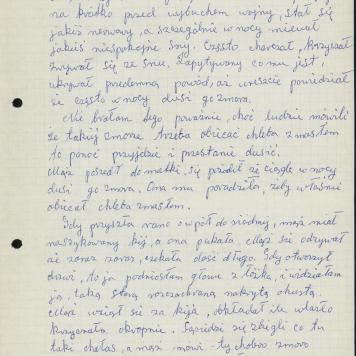 na krótko przed wybuchem wojny, stał się
jakiś nerwowy, a szczególnie w nocy miewał
jakieś niespokojne sny. Często charczał, krzyczał
zrywał się ze snu. Zapytywany co mu jest,
ukrywał przedemną powód, aż wreszcie powiedział
że często w nocy dusi go zmora.
Nie brałam tego poważnie, choć ludzie mówili
że takiej zmorze trzeba obiecać chleba z masłem
to ponoć przyjdzie i przestanie dusić.
Mąż poszedł do matki, się że ciągle w nocy
dusi go zmora. Ona mu poradziła, żeby właśnie
obiecał chleba z masłem.
Gdy przyszła rano o wpół do siódmej, mąż miał
naszykowany kij, a ona pukała. Mąż się odzywał
że zaraz zaraz, czekała dość długo. Gdy otworzył
drzwi, to ja podniosłam głowę z łóżka, i widziałam
ją, taką starą rozczochraną nakrytą chustą.
Mąż wziął się za kija, okładał ile wlazło
krzyczała okropnie. Sąsiedzi zbiegli co tu
taki hałas, a mąż mówi - ty choroo zmoro